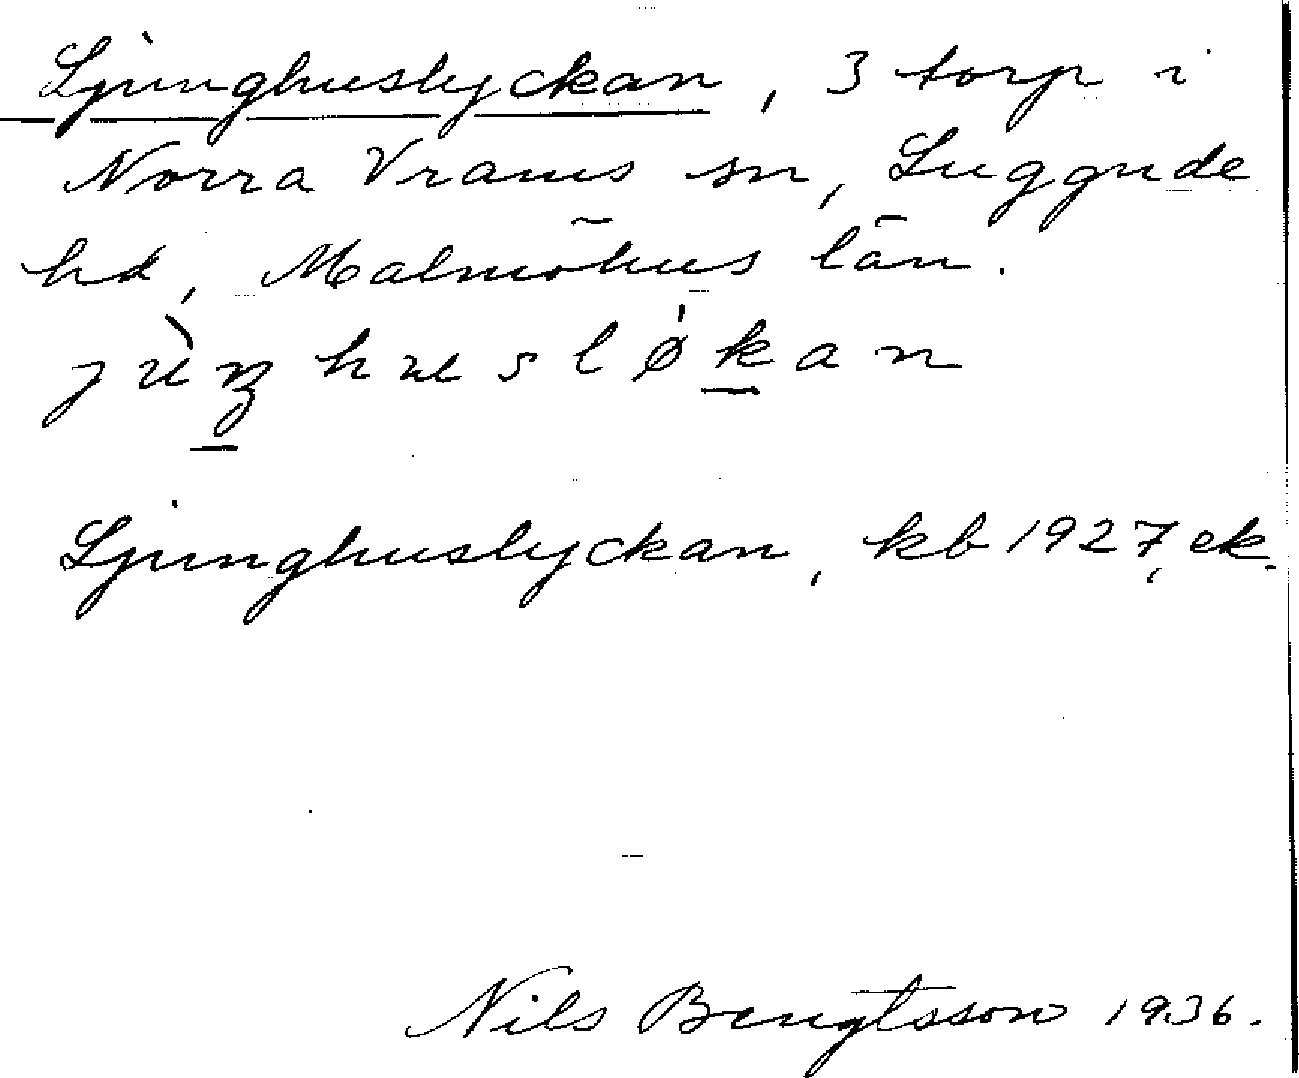 Ljunghuslyckan, 3 torp i
Norra Vrams sn, Luggude
hd, Malmöhus län.
jùŋhusløkan
Ljunghuslyckan, kb 1927, ek.
Nils Bengtsson 1936.